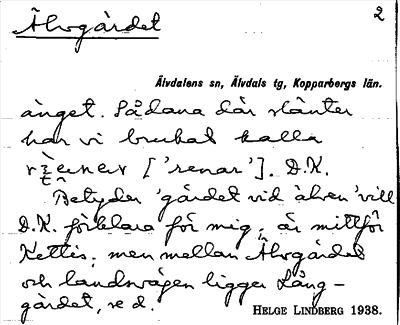 Älvgärdet 2
Älvdalens sn, Älvdals tg, Kopparbergs län.
änget. Sådana där slänter
har vi brukat kalla
['renar']. D.K.
Betyder 'gärdet vid älven' vill
D.K. förklara för mig; är mittför
Kettis; men mellan Älvgärdet
och landsvägen ligger Lång-
gärdet, se d.
HELGE LINDBERG 1938.